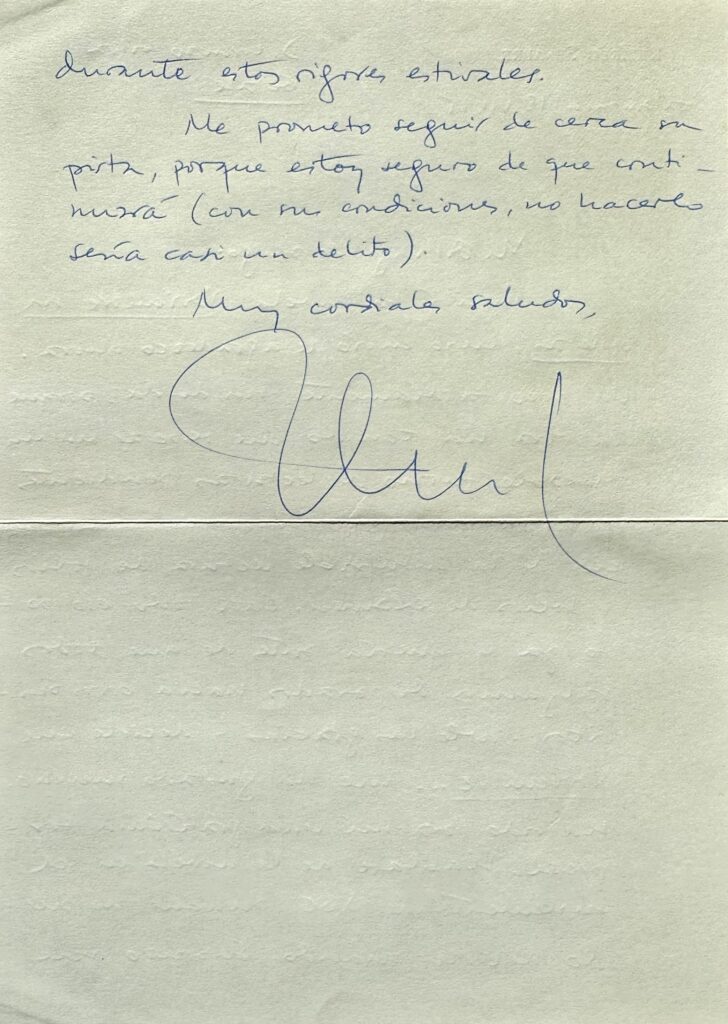 durante estos rigores estivales.
Me prometo seguir de cerca su
pista, porque estoy seguro de que conti-
nuará (con sus condiciones, no hacerlo
sería casi un delito).
Muy cordiales saludos,